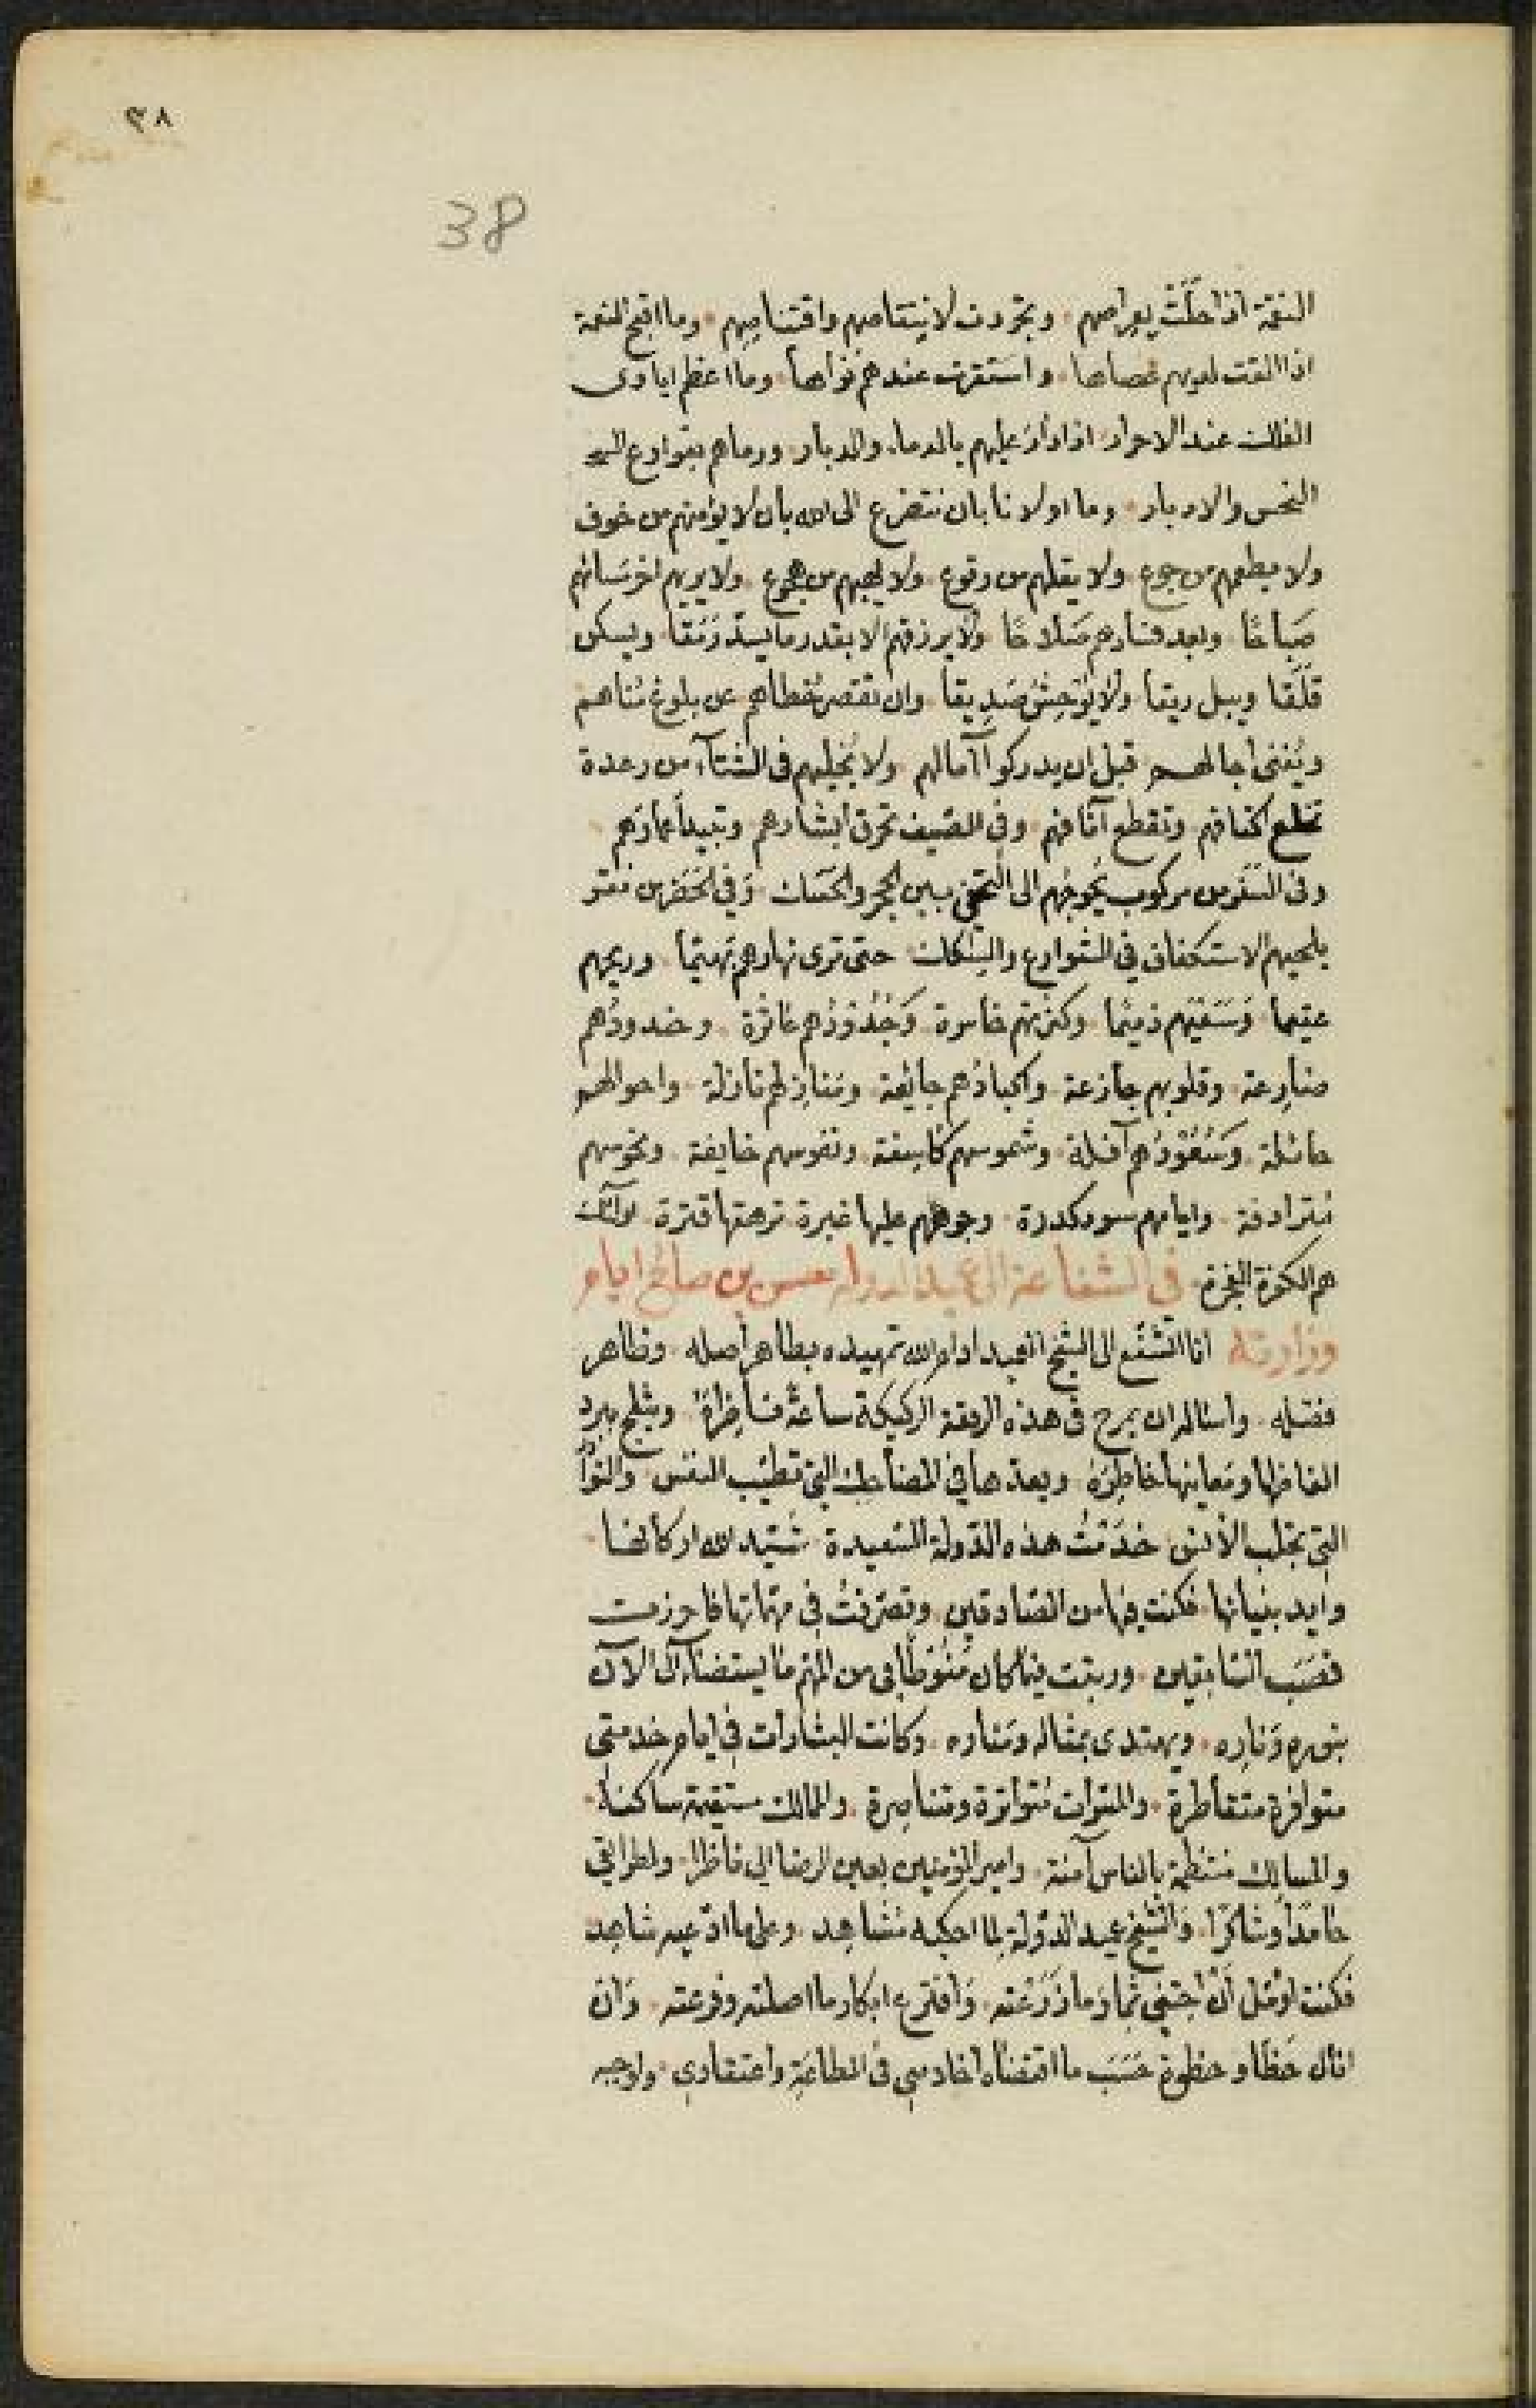 ٣٨
38
النقمة اذا حلّت بعراصهم وتجردت لانتقاصهم واقتناصهم وما اقبح النعمة
اذا القت لديهم عصاها واستقرت عندهم نواها وما اعظم ايادى
الفلك عند الاحرار اذا دار عليهم بالدمار والدبار ورماهم بقوارع
النحس والادبار وما اولانا بان نتضرع الى الله بان لا يؤمنهم من خوف
ولا يطعمهم من جوع ولا يقلهم من وقوع ولا من هجوع ولا يريهم اخر مسائهم
صباحًا وبعد فسادهم صلاحًا ولا يرزقهم الا بقدر ما يسدّ رمقًا ويسكن
قلقًا ويبل ريقا ولا يوحش صديقا وان تقصر خطاهم عن بلوغ مناهم
ويفنى اجالهم قبل ان يدركوا آمالهم ولا يخليهم فى الشتآء من رعدة
تخلع اكتافهم وتقطع آنافهم وفى الصيف تحرق ابشارهم وتبيد اعمارهم
وفى السفر من مركوب يحوجهم الى بين الحجر والحصاة وفى الحضر من فقر
يلجيهم الاستكفاف فى الشوارع والسكك حتى ترى نهارهم بهيمًا وريحهم
عقيما وسعيهم ذميمًا وكرتهم خاسرة وجدودهم عاثرة وخدودهم
ضارعة وقلوبهم جازعة واكبادهم جايعة ومنازلهم نازلة واحوالهم
حائلة وسعودهم آفلة وشموسهم كاسفة ونفوسهم خايفة ونحوسهم
مترادفة وايامهم سود كدرة ووجوههم عليها غبرة ترهقها قترة اولئك
هم الكفرة الفجرة فى الشفاعة الى عميد الدولة بن صالح ايام
وزارته انا اتشفع الى الشيخ العميد ادام الله تمهيده بطاهر اصله وظاهر
فضله واساله ان يمرح فى هذه الرقعة الركيكة ساعةً ناظرة ويثلج ببرد
الفاظها ومعاينها خاطره ويعدها فى المضاحك التى تطيّب النفس
التى تجلب الانس خدمتُ هذه الدّولة السّعيدة شيّد الله اركانها
وايد بنيانها فكنت فيها من الصادقين وتصرفت فى مهماتها فاحرزت
قصب السّابقين ورتبت فيما كان منوطًا بى من المهم ما يستضاء الى الآن
بنوره وناره ويهتدى بمثاله ومناره وكانت البشارات فى ايام خدمتى
متوافرة متقاطرة متواترة ومتناصرة والممالك مستقيمة ساكنة
والمسالك منتظمة بالناس آمنة وامير المؤمنين بعين الرضا الى ناظرا ولطرائقى
حامدًا وشاكرًا والشيخ عميد الدولة لما احكيه مشاهد وعلى ما ادّعيه شاهد
فكنت اؤمّل ان اجتنى ثمار ما زرعته وافترع ابكار ما اصلته وفرعته وان
انال حظًّا وحظوة حسب ما اقتضاه اخلاصى فى الطاعة واعتقادى